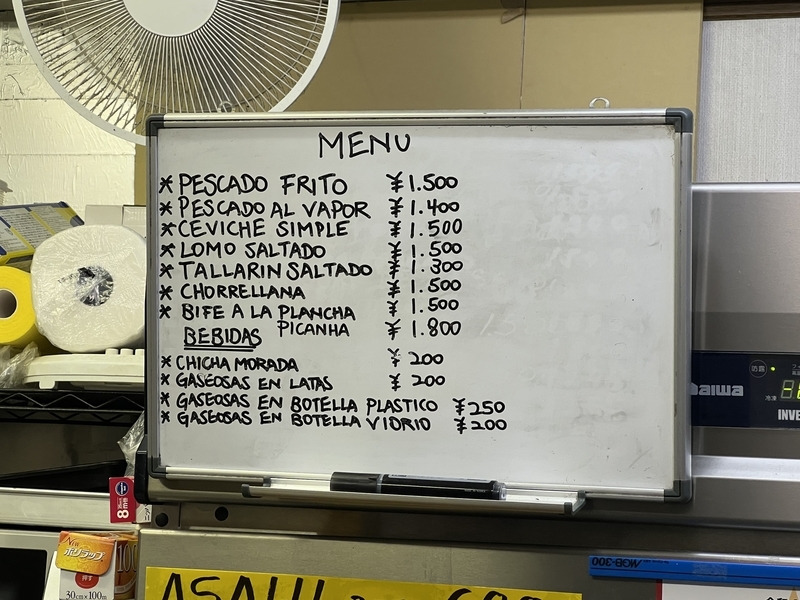 MENU
* PESCADO FRITO ¥ 1.500
* PESCADO AL VAPOR ¥ 1.400
* CEVICHE SIMPLE ¥ 1.500
* LOMO SALTADO ¥ 1.500
* TALLARIN SALTADO ¥ 1.300
* CHORRELLANA ¥ 1.500
* BIFE A LA PLANCHA ¥ 1.500
PICANHA ¥ 1.800
BEBIDAS
* CHICHA MORADA ¥ 200
* GASEOSAS EN LATAS ¥ 200
* GASEOSAS EN BOTELLA PLASTICO ¥250
* GASEOSAS EN BOTELLA VIDRIO ¥200
Daiwa
防露
冷凍
INVE
New
ポリラップ
30cm×100m
MGB-300
ASAHI